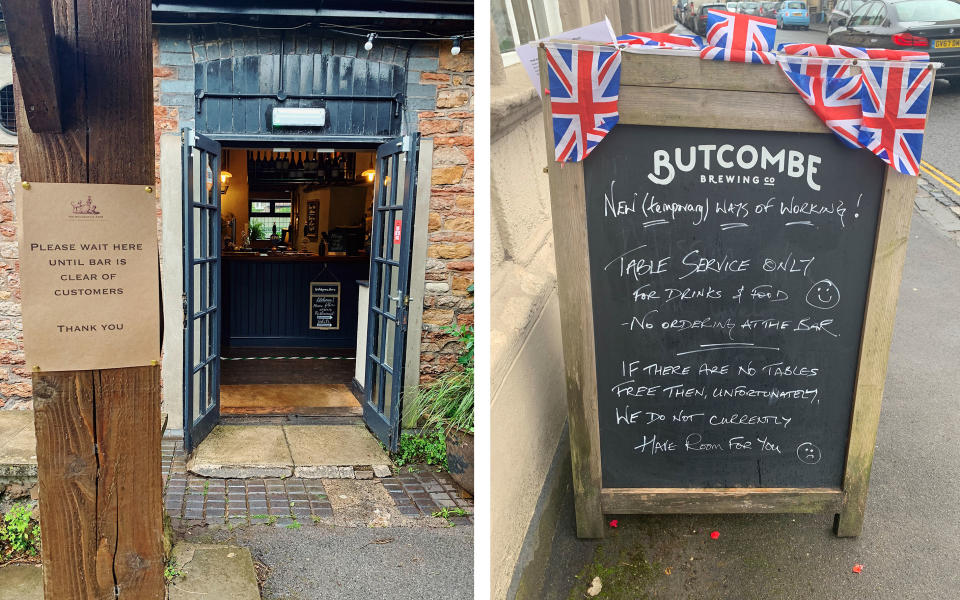 PLEASE WAIT HERE
UNTIL BAR IS
CLEAR OF
CUSTOMERS
THANK YOU
BUTCOMBE
BREWING CO
NEW (temporary) WAYS OF WORKING!
TABLE SERVICE ONLY
FOR DRINKS & FOOD
- NO ORDERING AT THE BAR
IF THERE ARE NO TABLES
FREE THEN, UNFORTUNATELY,
WE DO NOT CURRENTLY
HAVE ROOM FOR YOU